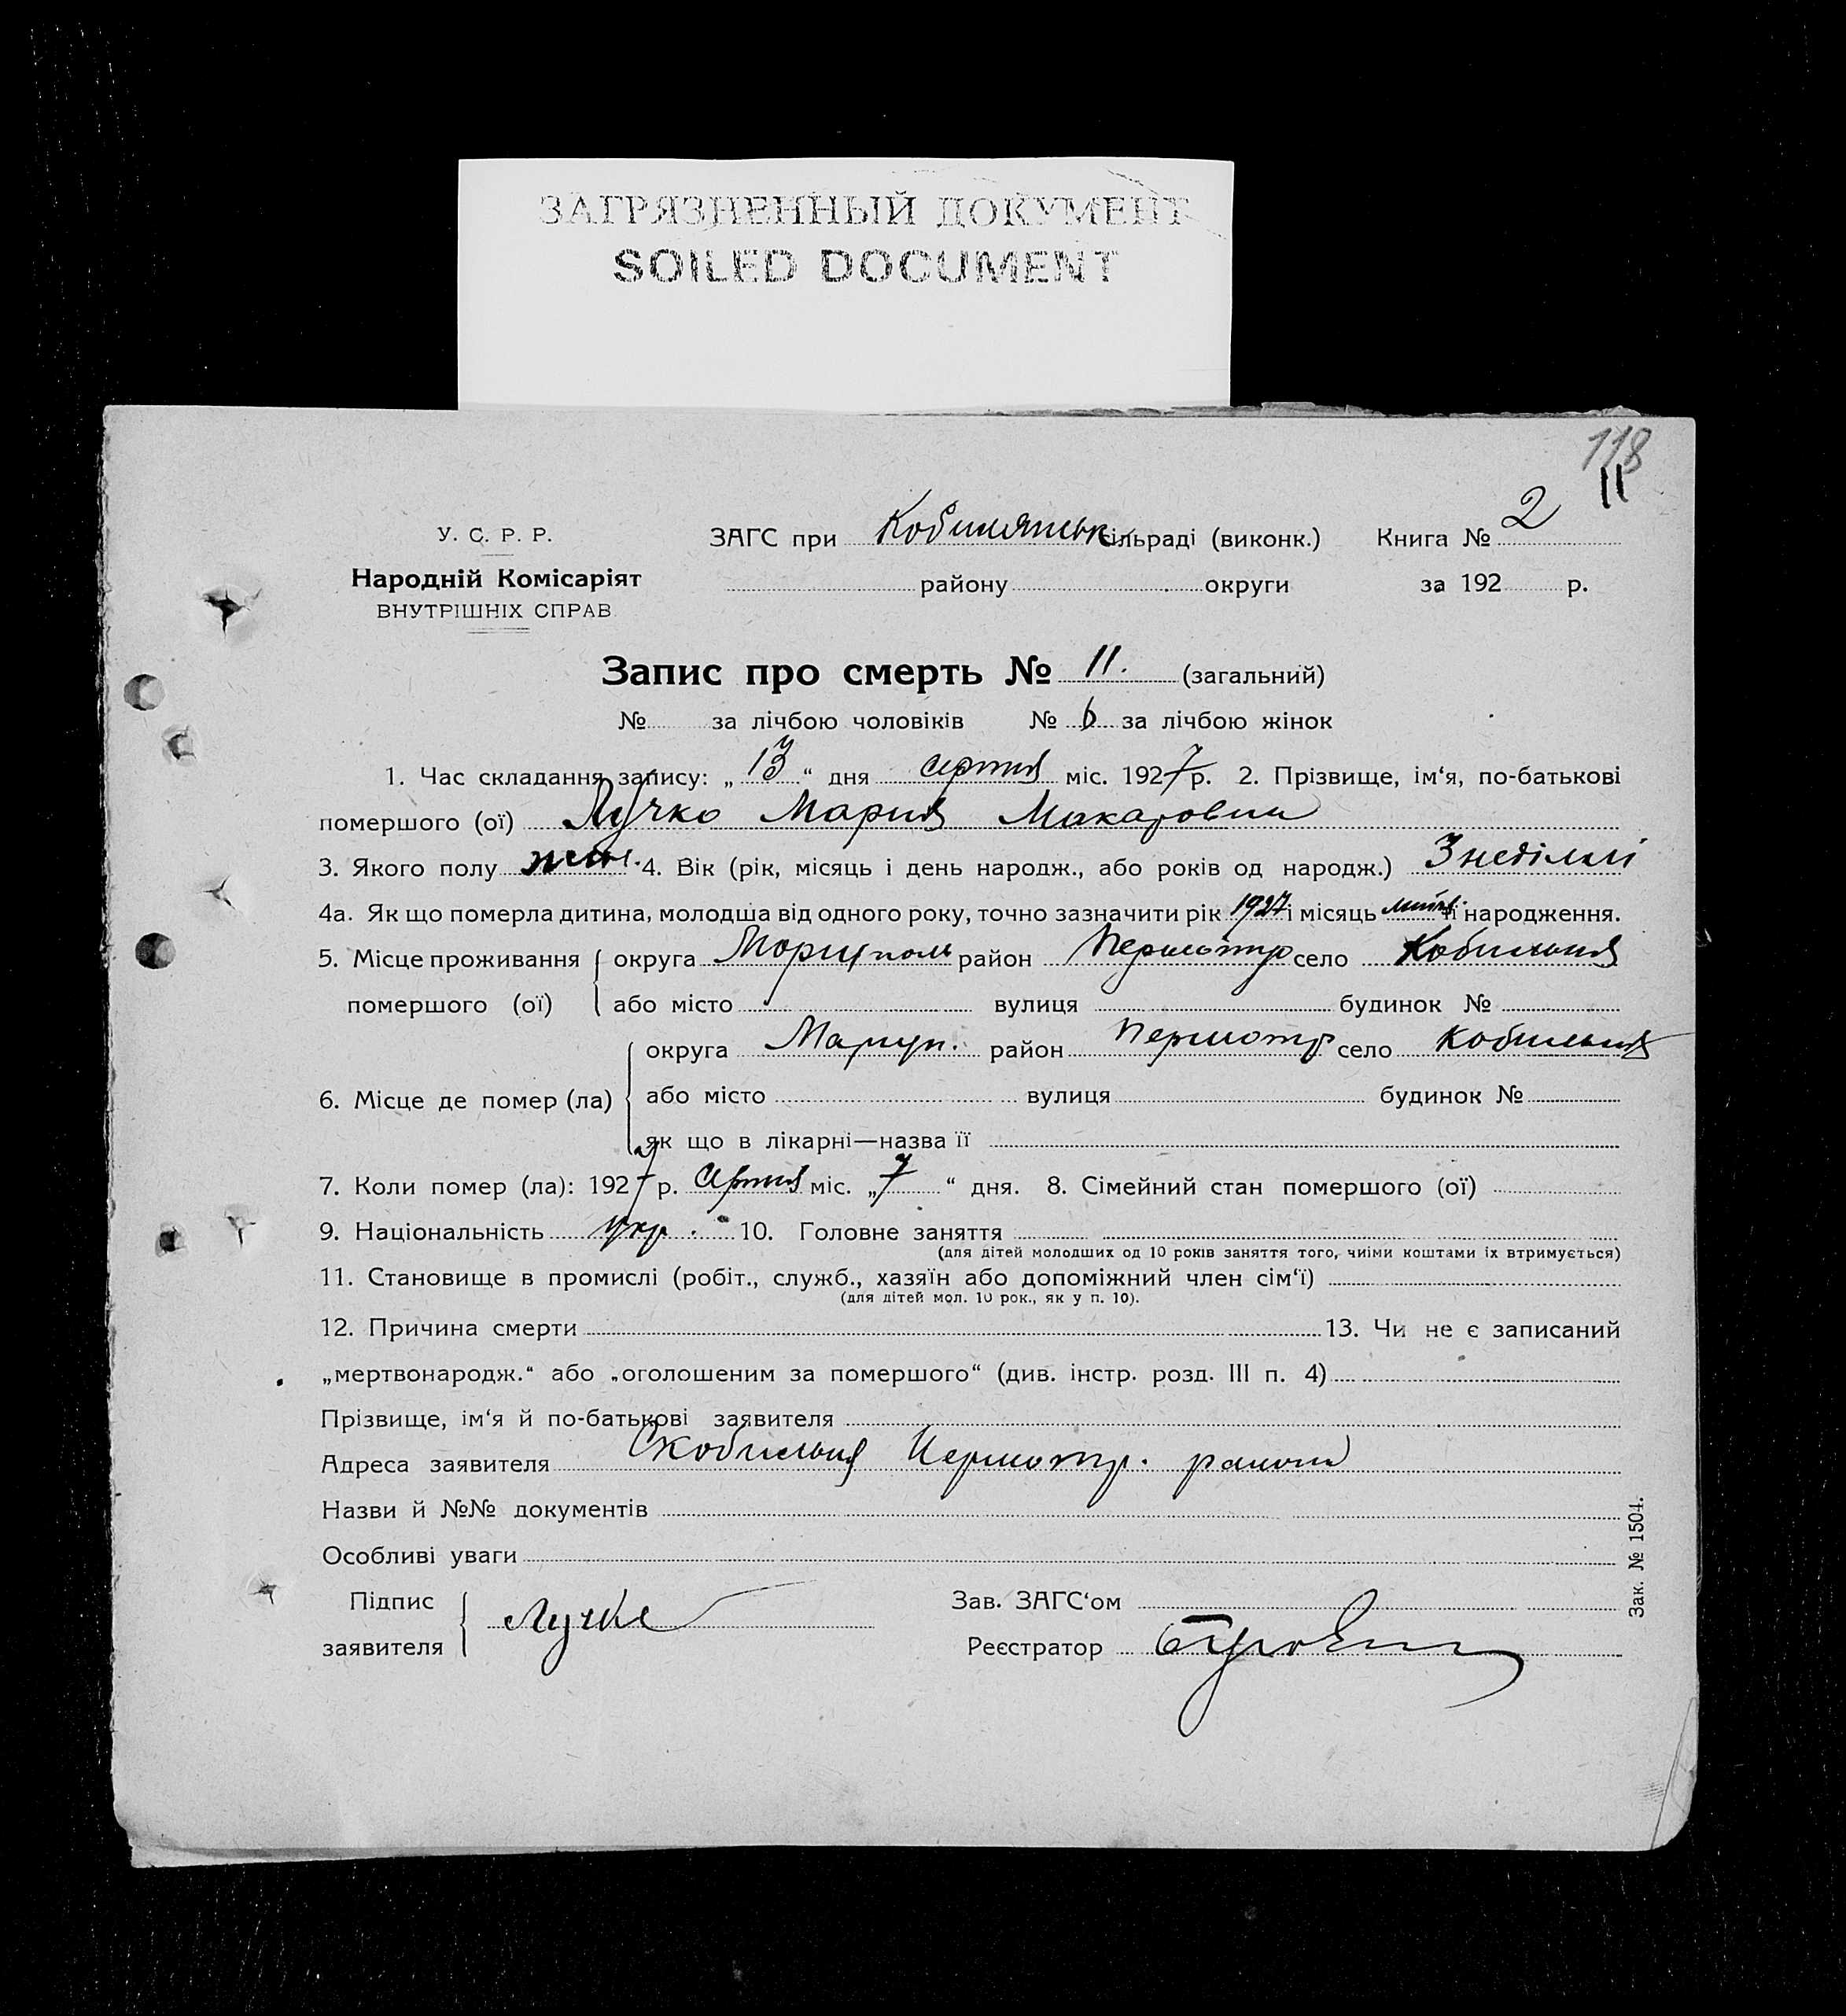 ЗАГРЯЗНЕННЫЙ ДОКУМЕНТ
SOILED DOCUMENT
118
11
У. С. Р. Р.
Народній Комісаріят
ВНУТРІШНІХ СПРАВ
ЗАГС при Кобилянськ сільраді (виконк.) Книга № 2
району округи за 192 р.
Запис про смерть № 11. (загальний)
№ за лічбою чоловіків № 6 за лічбою жінок
1. Час складання запису: „ 13 “ дня серпня міс. 1927 р. 2. Прізвище, ім‘я, по-батькові
помершого (ої) Лучко Мария Макаровна
3. Якого полу жін. 4. Вік (рік, місяць і день народж., або років од народж.) 3 недількі
4а. Як що померла дитина, молодша від одного року, точно зазначити рік 1927 і місяць її народження.
5. Місце проживання помершого (ої) округа Мориуполь район Першотр село Кобильня
або місто вулиця будинок №
6. Місце де помер (ла) округа Мариуп. район Першотр село Кобильня
або місто вулиця будинок №
як що в лікарні—назва її
7. Коли помер (ла): 1927 р. Серпня міс. „ 7 “ дня. 8. Сімейний стан помершого (ої)
9. Національність укр. 10. Головне заняття
(для дітей молодших од 10 років заняття того, чиїми коштами їх втримується)
11. Становище в промислі (робіт., служб., хазяїн або допоміжний член сім‘ї)
(для дітей мол. 10 рок., як у п. 10).
12. Причина смерти 13. Чи не є записаний
„мертвонародж.“ або „оголошеним за помершого“ (див. інстр. розд. III п. 4)
Прізвище, ім‘я й по-батькові заявителя
Адреса заявителя С Кобильня Першотр. района
Назви й №№ документів
Особливі уваги
Підпис заявителя Лучко
Зав. ЗАГС‘ом
Реєстратор
Зак. № 1504.